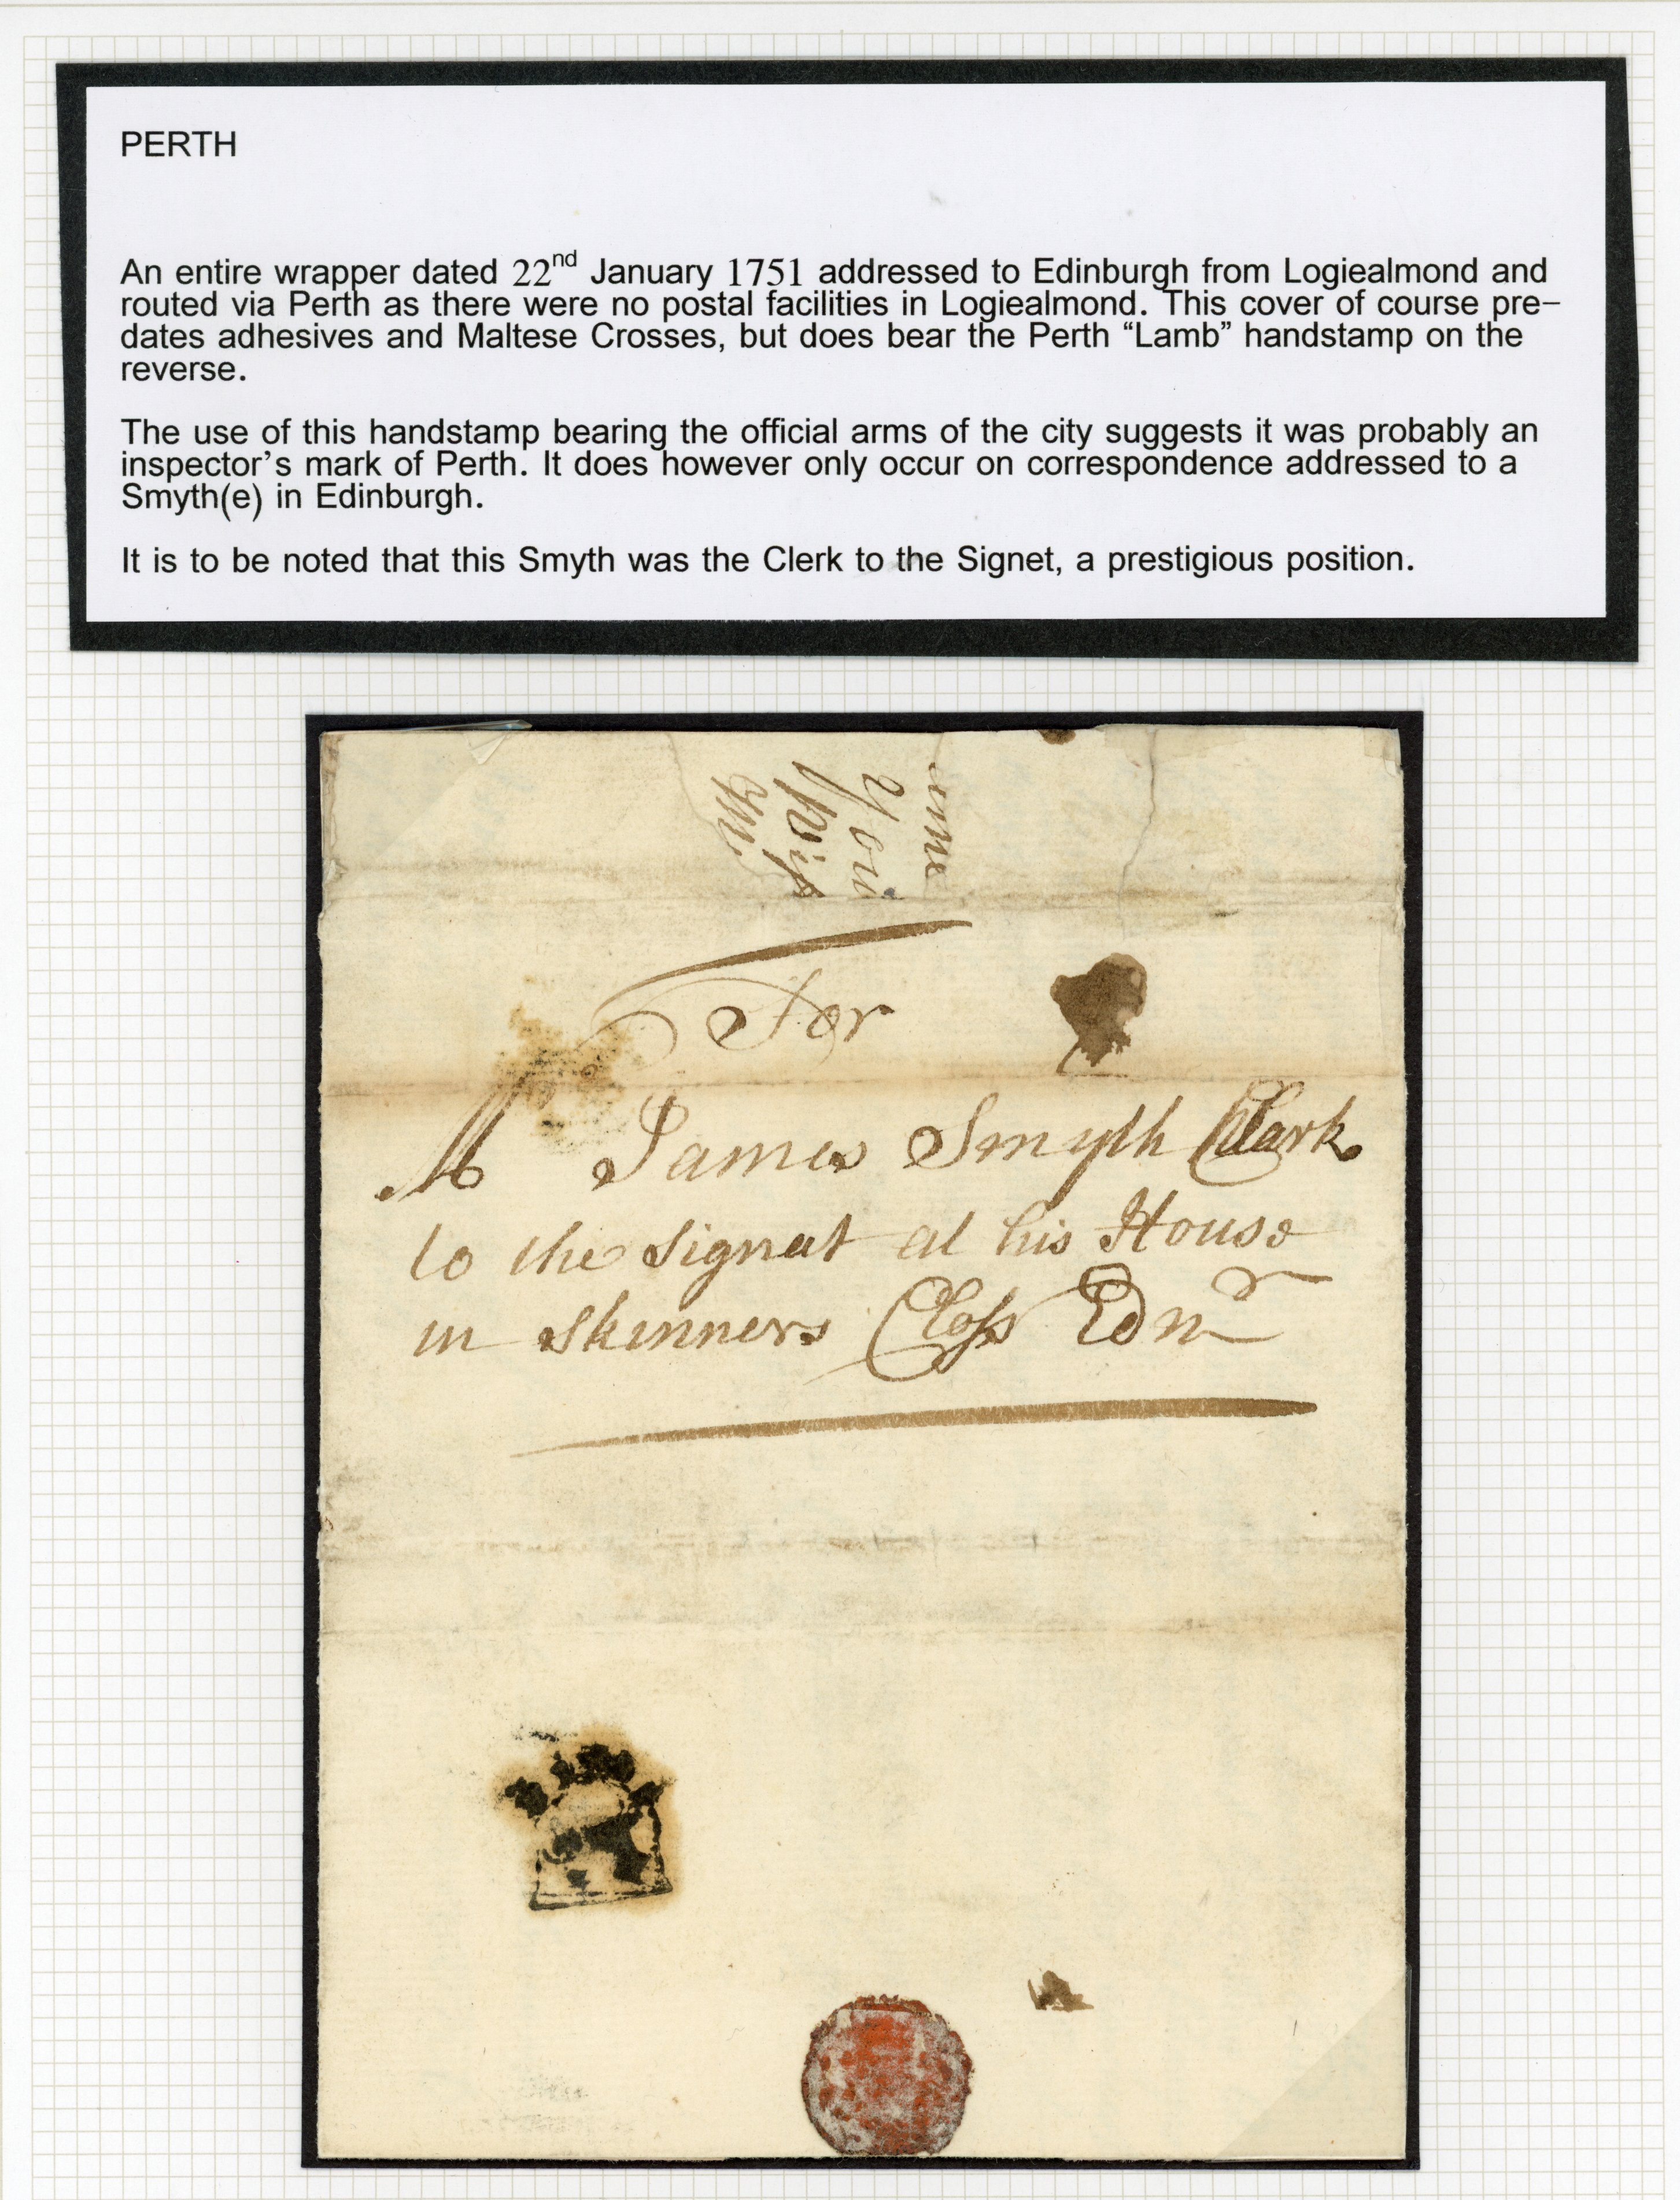 PERTH
An entire wrapper dated 22nd January 1751 addressed to Edinburgh from Logiealmond and
routed via Perth as there were no postal facilities in Logiealmond. This cover of course pre–
dates adhesives and Maltese Crosses, but does bear the Perth “Lamb” handstamp on the
reverse.
The use of this handstamp bearing the official arms of the city suggests it was probably an
inspector’s mark of Perth. It does however only occur on correspondence addressed to a
Smyth(e) in Edinburgh.
It is to be noted that this Smyth was the Clerk to the Signet, a prestigious position.
For
M James Smyth Clark
to the Signat at his House
in Skinners Closs Ednr